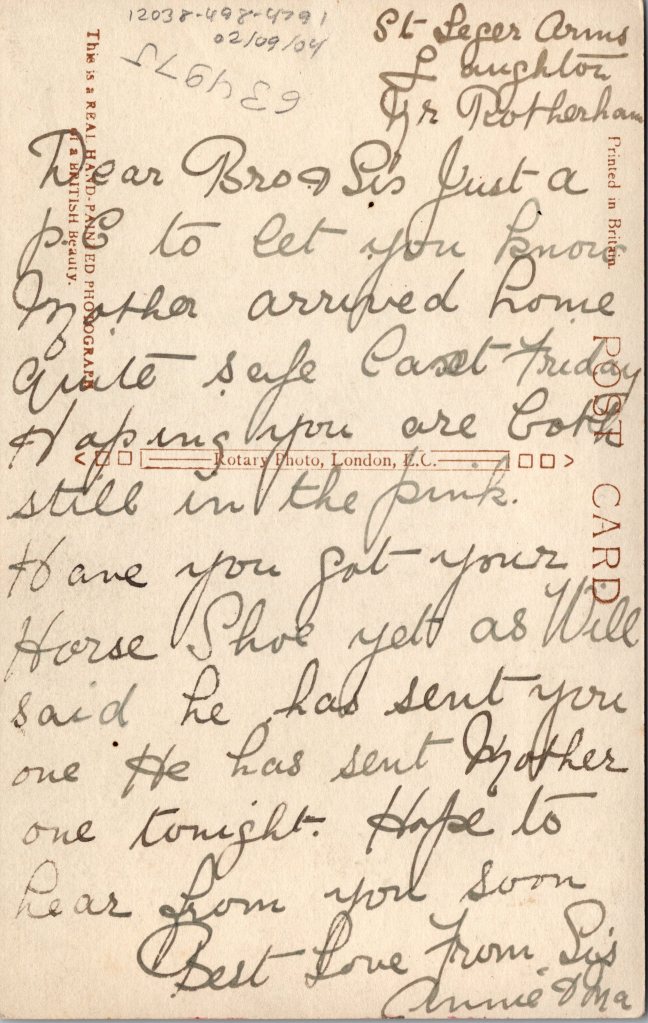 12038-498-4791
02/09/04
634975
St Leger Arms
Laughton
Nr Rotherham
Dear Bro & Sis Just a
p.c to let you know
Mother arrived home
quite safe Last Friday
Hoping you are both
still in the pink.
Have you got your
Horse Shoe yet as Will
said he has sent you
one He has sent Mother
one tonight. Hope to
hear from you soon
Best Love From Sis
Annie &
This is a REAL HAND-PAINTED PHOTOGRAPH
of a BRITISH Beauty.
Rotary Photo, London, E.C.
POST CARD
Printed in Britain.